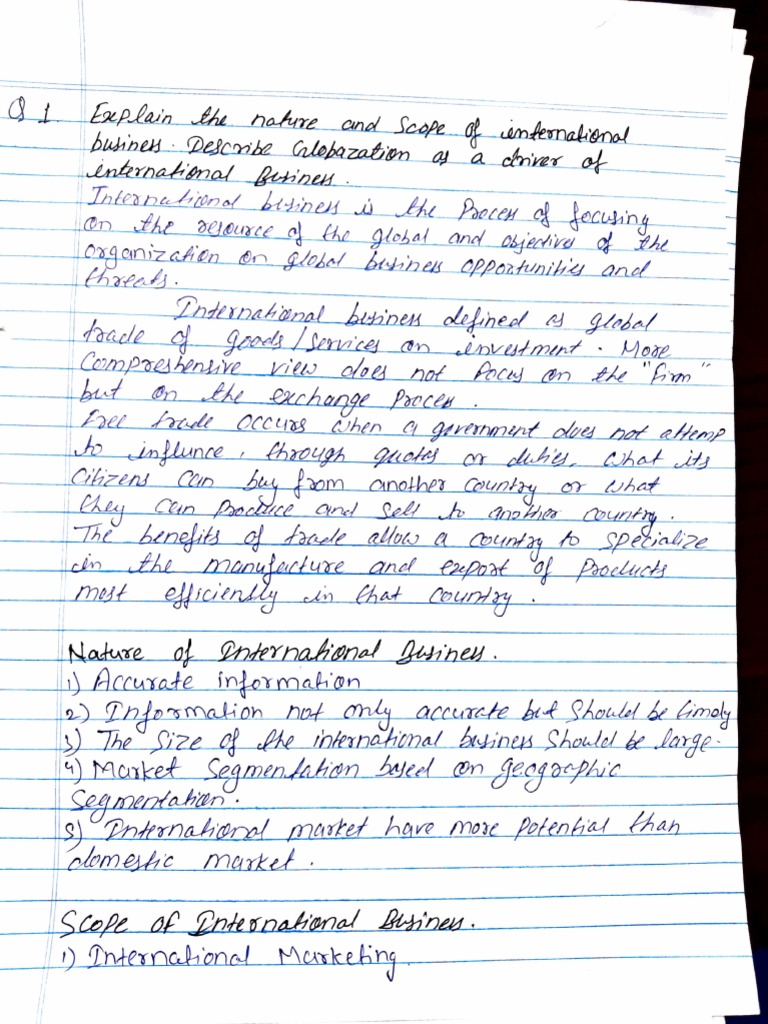 Q 1. Explain the nature and Scope of international
business. Describe Globazation as a driver of
international Business.
International business is the Process of focusing
on the resource of the global and objectives of the
organization on global business opportunities and
threats.
International business defined as global
trade of goods/services on investment. More
Compreshensive view does not focus on the "firm"
but on the exchange Process.
Free trade occurs when a government does not attemp
to influnce, through quotas or duties, what its
Citizens can buy from another country or what
they can Produce and sell to another country.
The benefits of trade allow a country to specialize
in the manufacture and export of Products
most efficiently in that country.
Nature of International Business.
1) Accurate information
2) Information not only accurate but should be timely
3) The Size of the international business should be large.
4) Market Segmentation based on geographic
Segmentation.
5) International market have more potential than
domestic market.
Scope of International Business.
1) International Marketing.